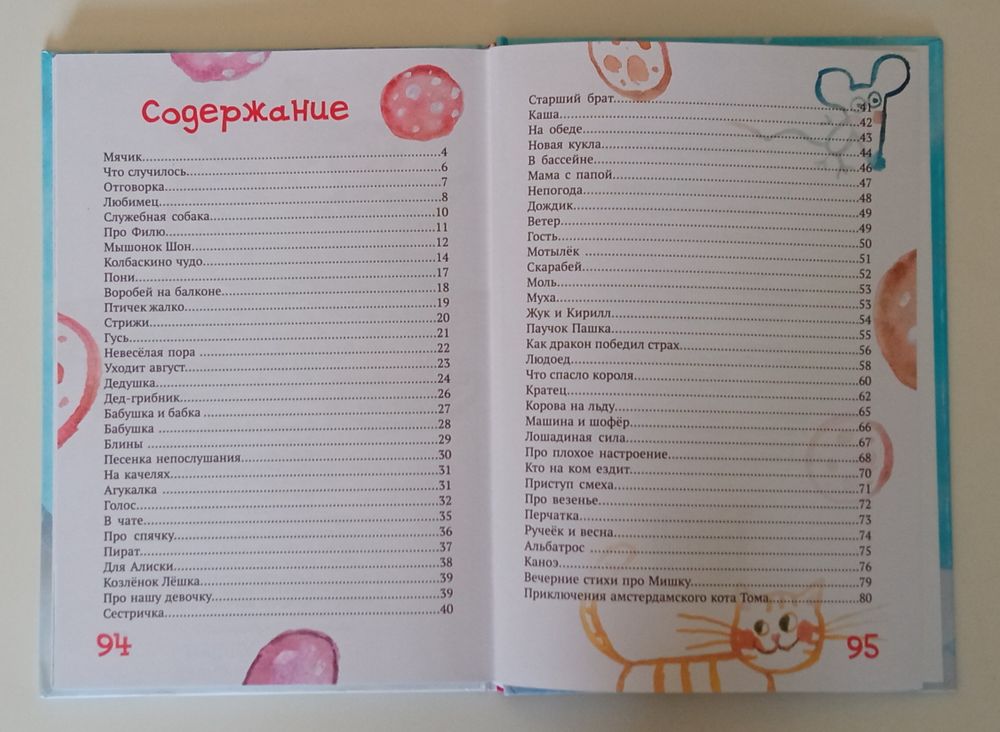 Содержание
Мячик....4
Что случилось....6
Отговорка....7
Любимец....8
Служебная собака....10
Про Филю....11
Мышонок Шон....12
Колбаскино чудо....14
Пони....17
Воробей на балконе....18
Птичек жалко....19
Стрижи....20
Гусь....21
Невесёлая пора....22
Уходит август....23
Дедушка....24
Дед-грибник....26
Бабушка и бабка....27
Бабушка....28
Блины....29
Песенка непослушания....30
На качелях....31
Агукалка....31
Голос....32
В чате....35
Про спячку....36
Пират....37
Для Алиски....38
Козлёнок Лёшка....39
Про нашу девочку....39
Сестричка....40
94
Старший брат....41
Каша....42
На обеде....43
Новая кукла....44
В бассейне....46
Мама с папой....47
Непогода....48
Дождик....49
Ветер....49
Гость....50
Мотылёк....51
Скарабей....52
Моль....53
Муха....53
Жук и Кирилл....54
Паучок Пашка....55
Как дракон победил страх....56
Людоед....58
Что спасло короля....60
Кратец....62
Корова на льду....65
Машина и шофёр....66
Лошадиная сила....67
Про плохое настроение....68
Кто на ком ездит....70
Приступ смеха....71
Про везенье....72
Перчатка....73
Ручеёк и весна....74
Альбатрос....75
Каноэ....76
Вечерние стихи про Мишку....79
Приключения амстердамского кота Тома....80
95